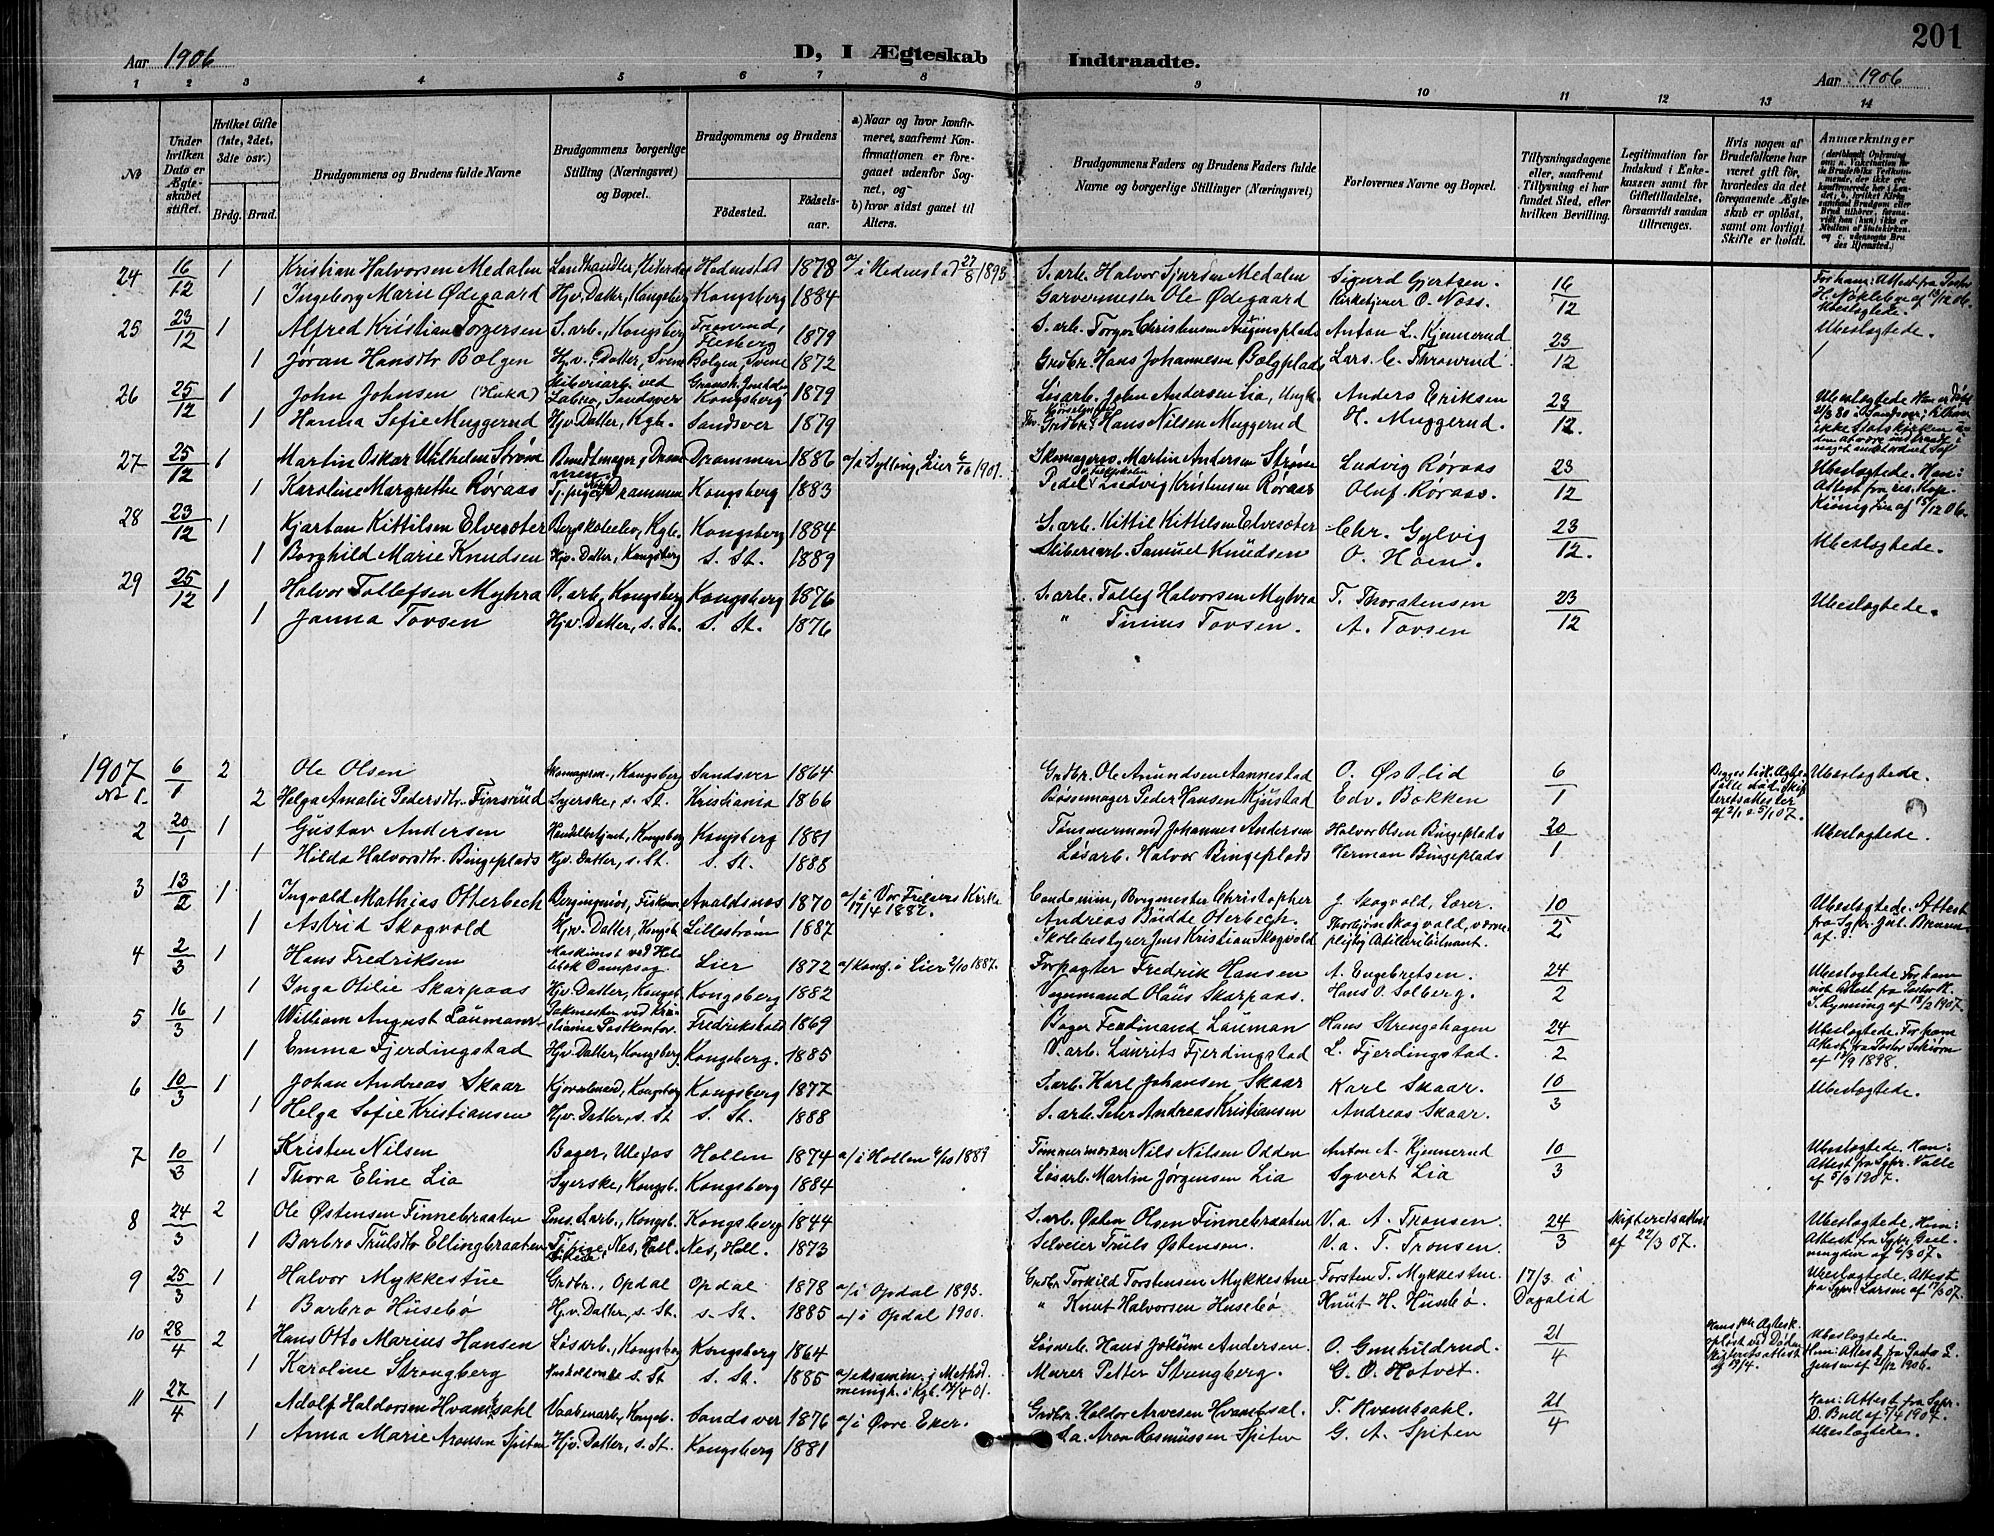 201
Aar 1906
D, I Ægteskab Indtraadte.
Aar 1906
1 2 3 4 5 6 7 8 9 10 11 12 13 14
No
Under hvilken Dato er Ægteskabet stiftet.
Hvilket Gifte (1ste, 2det, 3die osv.)
Brdg. Brud.
Brudgommens og Brudens fulde Navne
Brudgommens borgerlige Stilling (Næringsvei) og Bopæl.
Brudgommens og Brudens
Fødested. Fødselsaar.
a) Naar og hvor konfirmeret, saafremt Konfirmationen er foregaaet udenfor Sognet, og
b) hvor sidst gaaet til Alters.
Brudgommens Faders og Brudens Faders fulde Navne og borgerlige Stillinger (Næringsvei)
Forlovernes Navne og Bopæl.
Tillysningsdagene eller, saafremt Tillysning ei har fundet Sted, efter hvilken Bevilling.
Legitimation for Indskud i Enkekassen samt for Giftetilladelse, forsaavidt saadan tiltrænges.
Hvis nogen af Brudefolkene har været gift før, hvorledes da det foregaaende Ægteskab er opløst, samt om lovligt Skifte er holdt.
Anmærkninger
24 16/12 1 Kristian Halvorsen Medalen Landhandler, Hiterdal Hedenstad 1878 a/ i Hedenstad 27/8 1893 S. arb. Halvor Sjursen Medalen Sigurd Gjertsen. 16/12 For ham: Attest fra Pastor
1 Ingeborg Marie Ødegaard Hjv. Datter, Kongsberg Kongsberg 1884 Garvermester Ole Ødegaard Kirketjener O. Noss. Ubeslægtede.
25 23/12 1 Alfred Kristian Torgersen S. arb., Kongsberg 1879 S. arb. Torger Christensen Anton L. Kjennerud 23/12 Ubeslægtede.
1 Joran Hansdtr Bolgen Hjv. Datter, Svene Bolgen, Svene 1872 Grdbr. Hans Johannesen Lars C. Throsrud
26 25/12 1 John Johnsen (Huka) Sliberiarb. ved Labro, Sandsver Kongsberg 1879 Løsarb. John Andersen Lia, Anders Eriksen 23/12. Ubeslægtede
1 Hanna Sofie Muggerud Hjv Datter, Kgb. Sandsver 1879 Grdbr. Hans Nilsen Muggerud H. Muggerud.
27 25/12 1 Martin Oskar Wilhelm Strøm Drammen 1886 a/ i Sylling, Lier 6/10 1901. Skomagersv. Martin Andersen Strøm Ludvig Røraas 23/12 Ubeslægtede. Ham:
1 Karoline Margrethe Røraas Tj. pige, Drammen Kongsberg 1883 Pedel Ludvig Kristensen Røraas Oluf Røraas. Attest fra res. Kap.
28 23/12 1 Kjartan Kittilsen Elvesæter Bergskoleelev, Kgb. Kongsberg 1884 S. arb. Kittil Kittilsen Elvesæter Chr. Gylvig 23/12.
1 Borghild Marie Knudsen Hjv. Datter, Kongsberg s. St. 1889 Sliberiarb. Samuel Knudsen O. Hoen. Ubeslægtede.
29 25/12 1 Halvor Tollefsen Myhra V. arb, Kongsberg Kongsberg 1876 S. arb. Tollef Halvorsen Myhra T. Thorstensen 23/12 Ubeslægtede.
1 Janna Tovsen Hjv. Datter, s. St. s. St. 1876 " Tinius Tovsen. A. Tovsen
1907
No 1. 6/1 2 Ole Olsen Skomagerm., Kongsberg Sandsver 1864 Grdbr. Ole Amundsen Aannestad O. Østlid 6/1 Ubeslægtede.
2 Helga Amalie Pedersdtr. Fyrsrud Syerske, s. St. Kristiania 1866 Bøssemager Peder Hansen Kjustad Edv. Bakken af 2/1 & 5/1 07.
2 20/1 1 Gustav Andersen Handelsbetjent, Kongsberg Kongsberg 1881 Tømmermand Johannes Andersen Halvor Olsen Bingeplads 20/1 Ubeslægtede.
1 Hilda Halvorsdtr. Bingeplads Hjv. Datter, s. St. s. St. 1888 Løsarb. Halvor Bingeplads Herman Bingeplads
3 13/2 1 Ingvald Mathias Otterbech Avaldsnæs 1870 a/ i Vor Frelsers Kirke 17/4 1887. Borgmester Christopher Andreas Budde Oterbech. J. Skogvold, Lærer. 10/2 Ubeslægtede. Attest
1 Astrid Skogvold Hjv. Datter, Kongsb. Lillestrøm 1887 Skolebestyrer Jens Kristian Skogvold Thorbjørn Skogvold, værnepligtig Artilleriløitnant.
4 2/3 1 Hans Fredriksen Maskinist ved Dampsag Lier 1872 a/ Konf. i Lier 2/10 1887. Forpagter Fredrik Hansen A. Engebretsen. 24/2 Ubeslægtede For ham
1 Inga Otilie Skarpaas Hjv. Datter, Kongsb. Kongsberg 1882 Vognmand Olaus Skarpaas. Hans O. Solberg.
5 16/3 1 William August Laumann Fredrikshald 1869 Bager Ferdinand Lauman Hans Strengehagen 24/2 Ubeslægtede. For ham
1 Emma Fjerdingstad Hjv. Datter, Kongsberg Kongsberg. 1885 V. arb. Laurits Fjerdingstad L. Fjerdingstad.
6 10/3 1 Johan Andreas Skaar Kongsberg Kongsberg 1877 S. arb. Karl Johansen Skaar Karl Skaar. 10/3 Ubeslægtede.
1 Helga Sofie Kristiansen Hjv. Datter, s. St s. St. 1888 S. arb. Peter Andreas Kristiansen Andreas Skaar.
7 10/3 1 Kristen Nilsen Bager, Ulefos Hollen 1874 a/ i Hollen 6/10 1889 Nils Nilsen Odden Anton A. Kjennerud 10/3 Ubeslægtede. Ham:
1 Thora Eline Lia Syerske, Kongsb. Kongsberg 1884 Løsarb. Martin Jørgensen Lia Syvert Lia Attest fra Sgpr. Valle af 5/3 1907.
8 24/3 2 Ole Østensen Finnebraaten Pens. S. arb., Kongsb. Kongsberg 1844 S. arb. Østen Olsen Finnebraaten V. a. A. Tronsen. 24/3 Skifteretsattest af 22/3 07. Ubeslægtede.
1 Barbro Trulsdtr Ellingbraaten Tj. pige, Nes, Hall. Nes, Hall. 1873 Selveier Truls Østensen. V. a. T. Tronsen.
9 25/3 1 Halvor Mykkestue Grdbr., Opdal Opdal 1878 a/ i Opdal 1893. Grdbr Torkild Torstensen Mykkestue Torsten T. Mykkestue. 17/3 i Dagalid Ubeslægtede. Attest
1 Barbro Husebø Hjv. Datter, s. St. s. St. 1885 a/ i Opdal 1900. " Knut Halvorsen Husebø Knut H. Husebø. fra Sgpr. Larsen af 17/3 07.
10 28/4 2 Hans Otto Marius Hansen Løsarb., Kongsberg Kongsberg 1864 Løsarb. Hans Jokum Andersen. O. Gunhildrud. 21/4 Ubeslægtede.
1 Karoline Strongberg s. St s. St. 1885 a/ eksamin. i Method. menigh. i Kgb. 14/4 01. Murer Petter Strongberg. G. O. Hotvet.
11 27/4 1 Adolf Haldorsen Hvambsahl Vaabenarb., Kongsb. Sandsver 1876 a/ i Øvre Eker. Grdbr. Haldor Arvesen Hvambsal. T. Hvambsahl. 21/4 Ham: Attest fra Sgpr. D. Bull af 5/4 1907.
1 Anna Marie Aronsen Spiten Hjv. Datter, s. St. Kongsberg 1881 S. a. Aron Rasmussen Spiten G. A. Spiten Ubeslægtede.